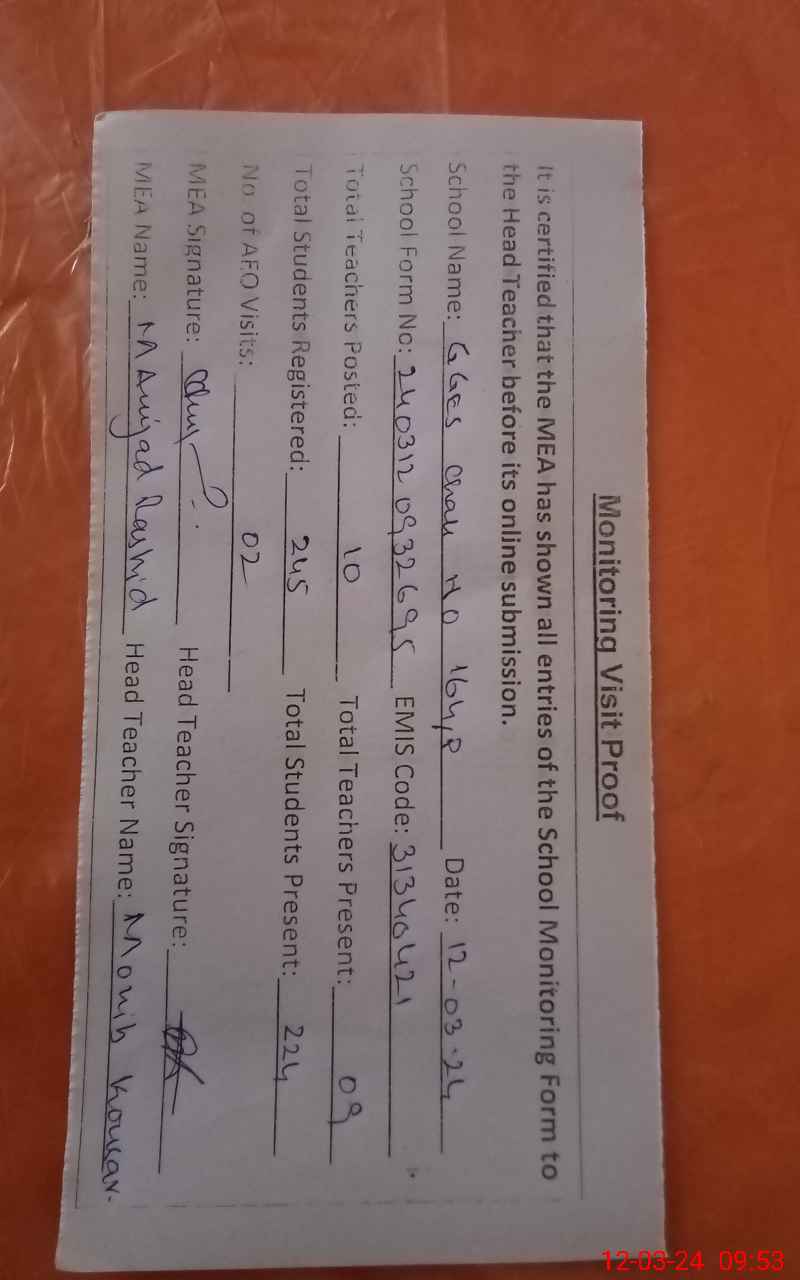 Monitoring Visit Proof
It is certified that the MEA has shown all entries of the School Monitoring Form to
the Head Teacher before its online submission.
School Name: GGES Chak No 164,P Date: 12-03-24
School Form No: 240312 0932695 EMIS Code: 31340421
Total Teachers Posted: 10 Total Teachers Present: 09
Total Students Registered: 245 Total Students Present: 224
No. of AEO Visits: 02
MEA Signature: Head Teacher Signature:
MEA Name: M Amjad Rashid Head Teacher Name:
12-03-24 09:53